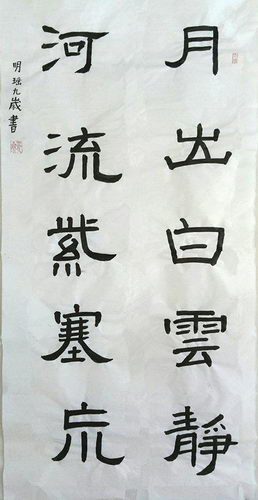 月出白雲靜
河流紫塞
明 九歲書